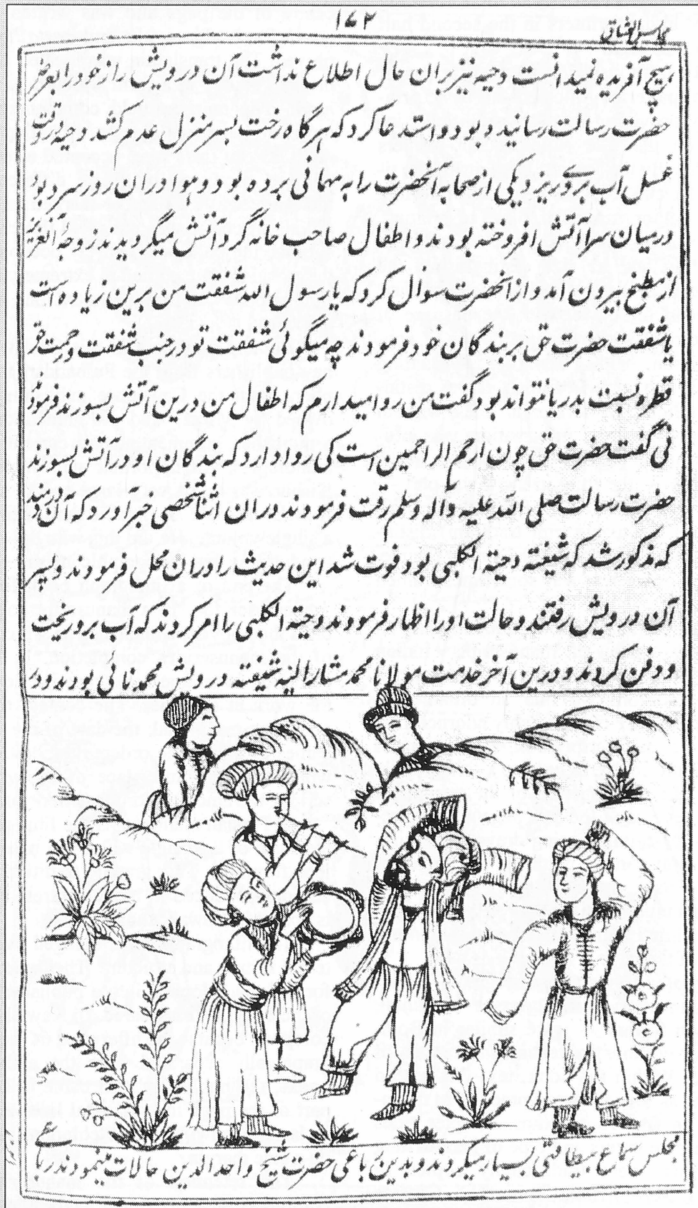 ۱۶۲
مجالس العشاق
هیچ آفریده نمیدانست دحیه نیز بران حال اطلاع نداشت آن درویش راز خود را بعرض
حضرت رسالت رسانیده بود و استدعا کرد که هرگاه رخت بسر منزل عدم کشد دحیه در وقت
غسل آب بروے ریزد یکی از صحابه آنحضرت را به مهمانی برده بود و هوا دران روز سرد بود
درمیان سرا آتش افروخته بودند و اطفال صاحب خانه گرد آتش میگردیدند زوجهٔ آنعزیز
از مطبخ بیرون آمد و از آنحضرت سوال کرد که یا رسول الله شفقت من برین زیاده است
یا شفقت حضرت حق بر بندگان خود فرمودند چه میگوئی شفقت تو در جنب شفقت و رحمت حق
قطره نسبت بدریا نتواند بود گفت من روا میدارم که اطفال من درین آتش بسوزند فرمود
نی گفت حضرت حق چون ارحم الراحمین است کی روا دارد که بندگان او در آتش بسوزند
حضرت رسالت صلی الله علیه وآله وسلم رقت فرمودند دران اثنا شخصی خبر آورد که آن
که مذکور شد که شیفته دحیة الکلبی بود فوت شد این حدیث را دران محل فرمودند و بسر
آن درویش رفتند و حالت او را اظهار فرمودند و دحیة الکلبی را امر کردند که آب برو ریخت
و دفن کردند و درین آخر خدمت مولانا محمد مشار الیه شیفته درویش محمد نائی بودند و در
مجلس سماع بیطاقتی بسیار میکردند و بدین رباعی حضرت شیخ واحد الدین حالات مینمودند رباعی